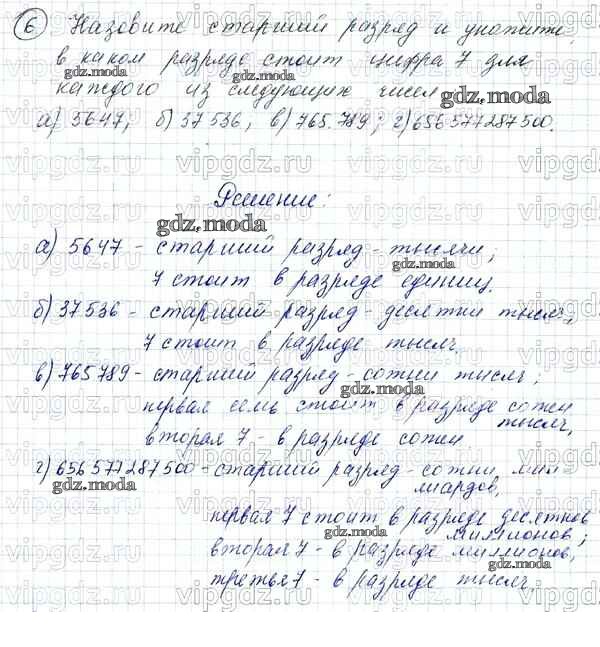 6 Назовите старший разряд и укажите,
в каком разряде стоит цифра 7 для
каждого из следующих чисел
а) 5647; б) 37536; в) 765.789; г) 656577287500.
Решение:
а) 5647 - старший разряд - тысячи;
7 стоит в разряде единиц.
б) 37536 - старший разряд - десятки тысяч,
7 стоит в разряде тысяч.
в) 765789 - старший разряд - сотни тысяч;
первая семь стоит в разряде сотен
тысяч,
вторая 7 - в разряде сотен.
г) 656577287500 - старший разряд - сотни мил-
лиардов,
первая 7 стоит в разряде десятков
миллионов;
вторая 7 - в разряде миллионов,
третья 7 - в разряде тысяч.
gdz.moda
vipgdz.ru